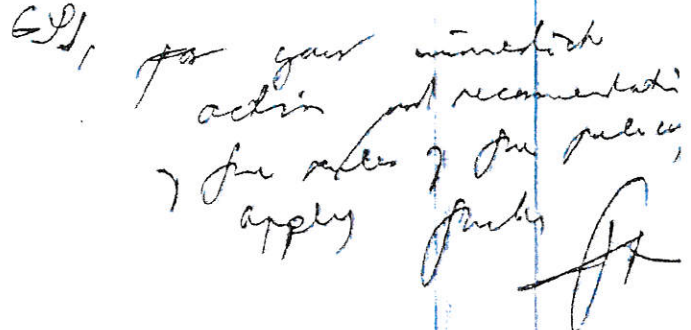 for your immediate
action and recommendati
of the rules of the policy
apply